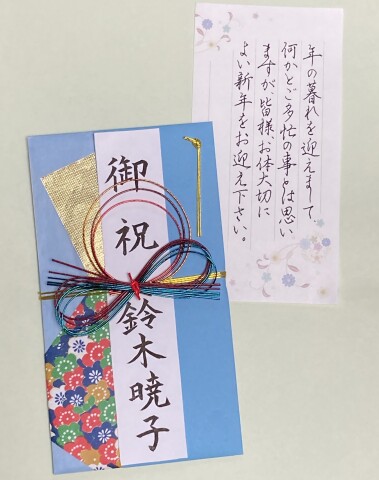 年の暮れを迎えまして
何かとご多忙の事とは思い
ますが、皆様、お体大切に
よい新年をお迎え下さい。
御祝
鈴木暁子